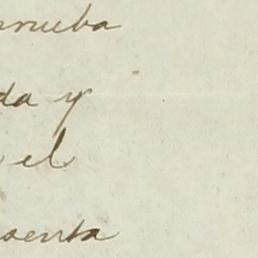 prueba
da y
el
senta